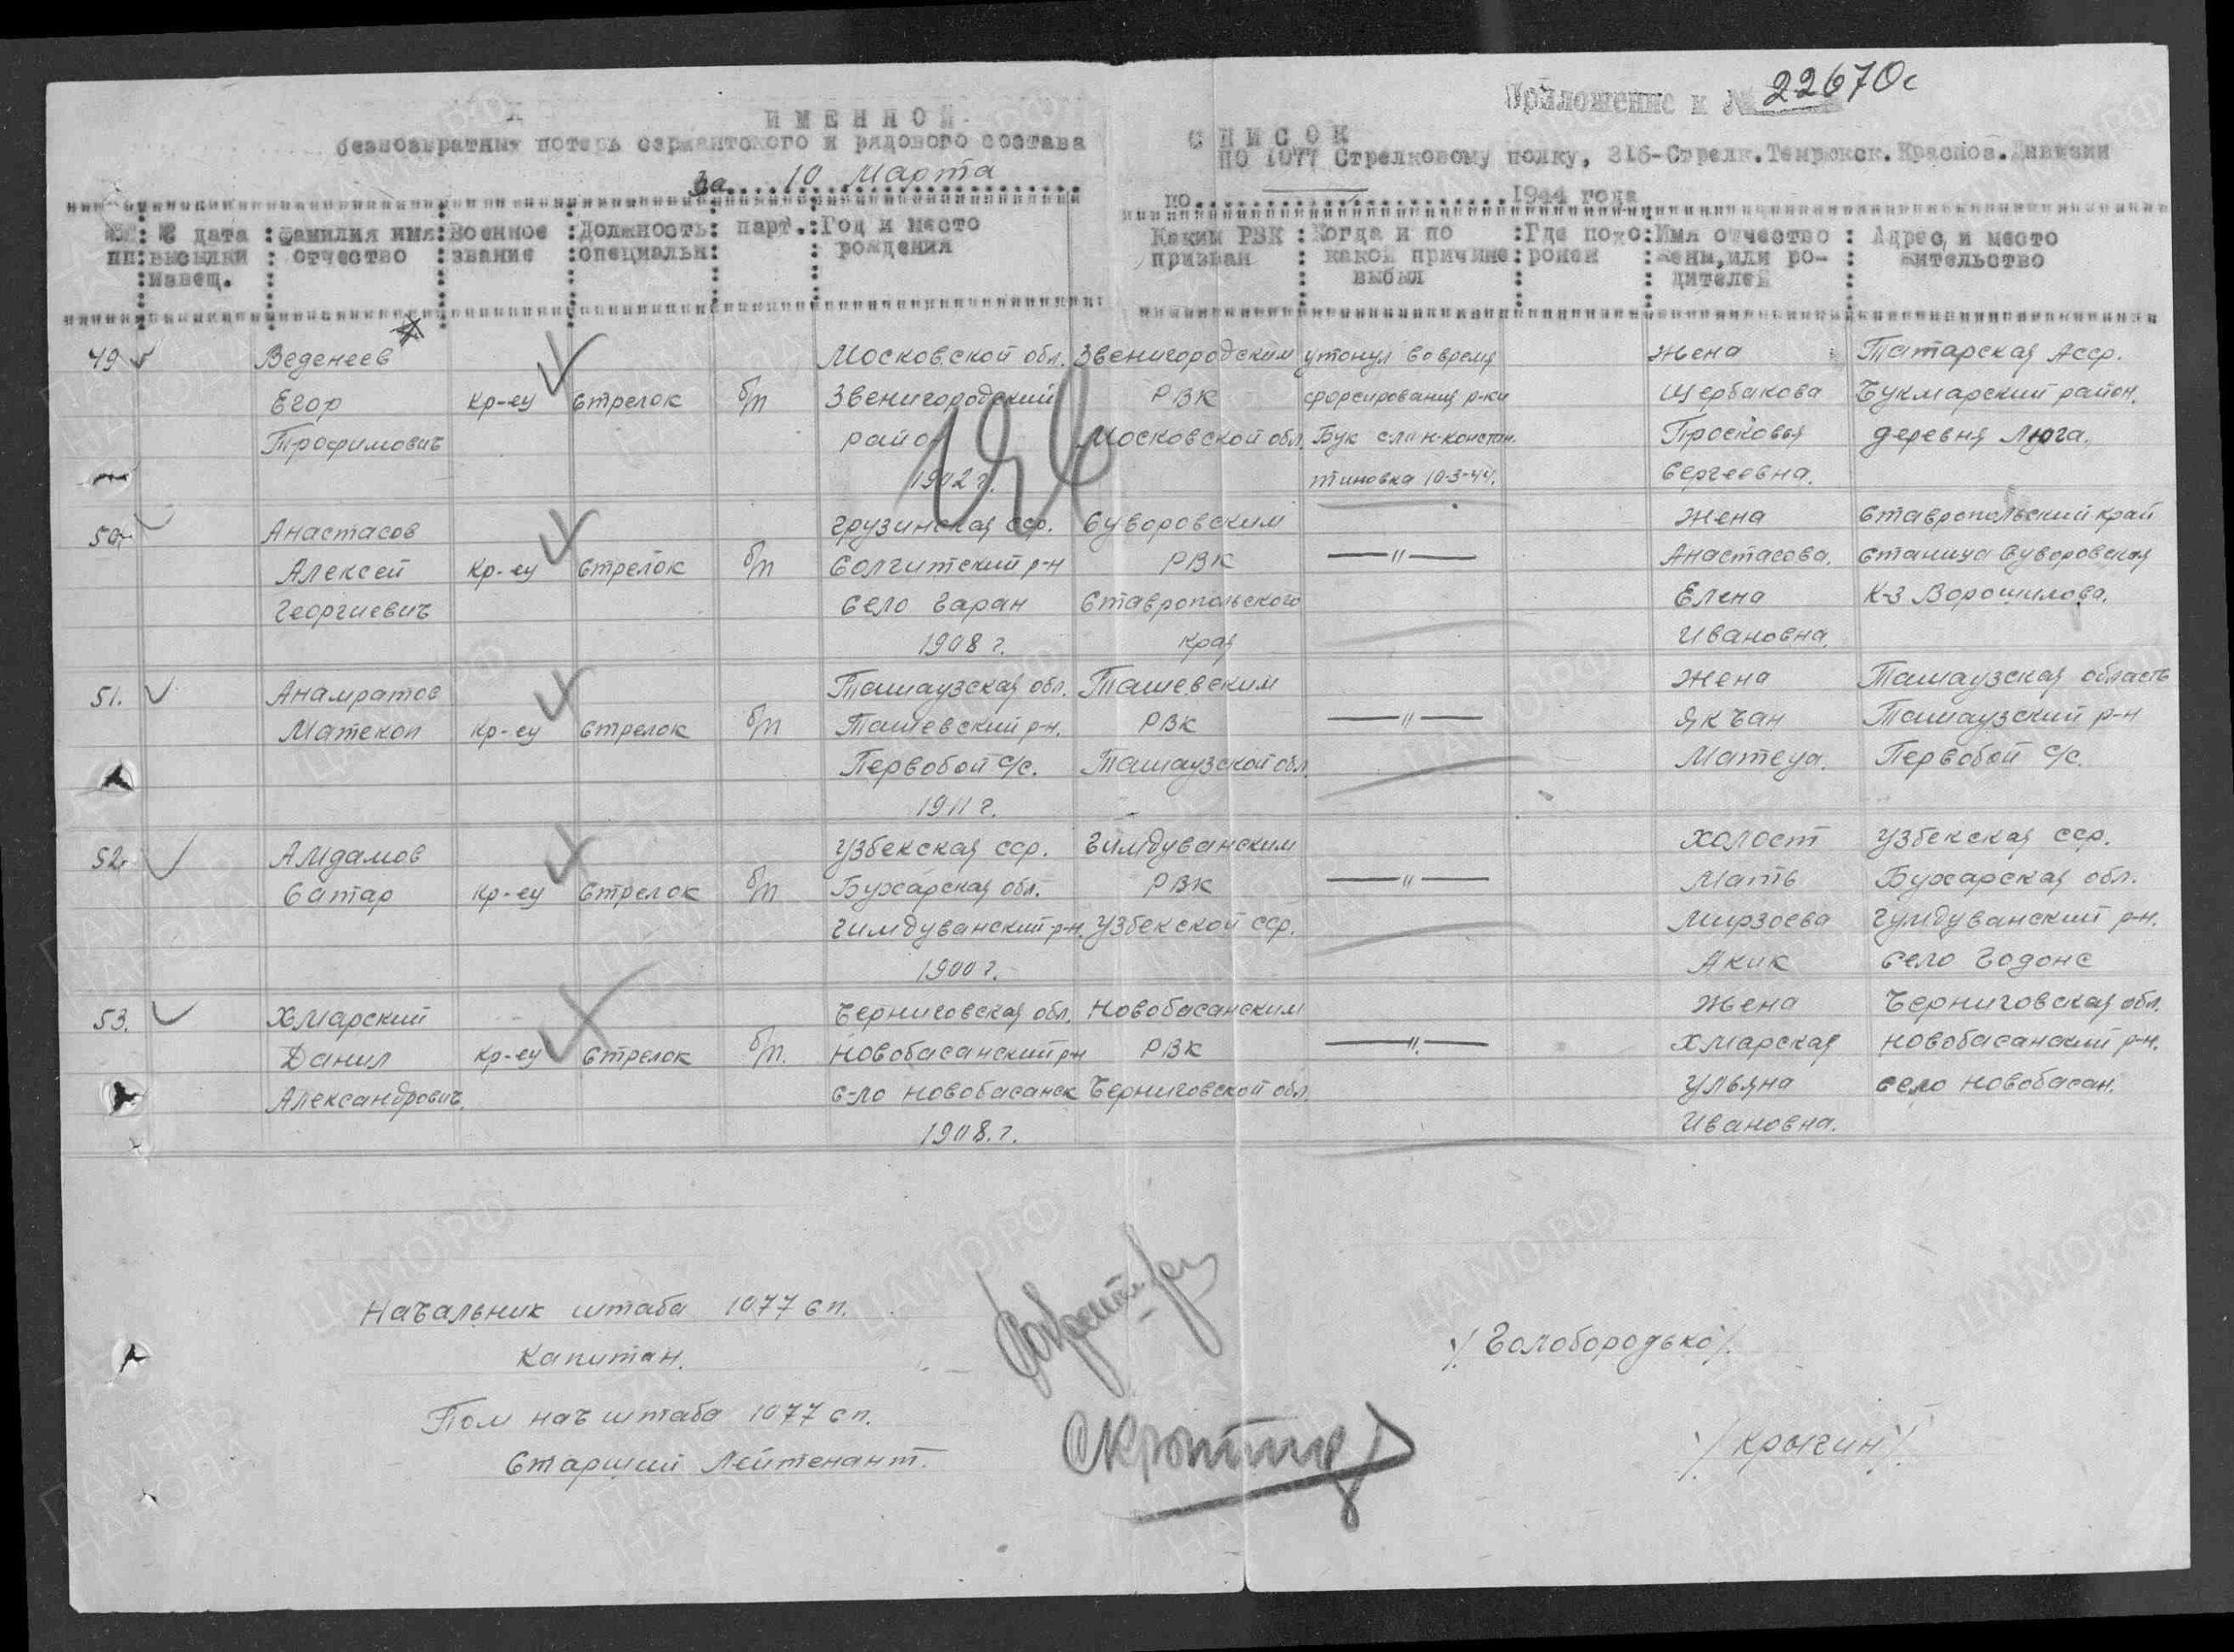 Приложение к № 22670с
ИМЕННОЙ
СПИСОК
безвозвратных потерь сержантского и рядового состава
по 1077 Стрелковому полку, 316-Стрелк. Темрюкск. Красноз. Дивизии
За 10 Марта
по 1944 года
№№ пп
№ дата высылки извещ.
фамилия имя отчество
Военное звание
Должность специальн:
парт.
Год и место рождения
Каким РВК призван
Когда и по какой причине выбыл
Где похоронен
Имя отчество жены, или родителей
Адрес и место жительство
196
49 Веденеев Московской обл. Звенигородским утонул во время жена Татарская Асср.
Егор кр-ец Стрелок б/п Звенигородский РВК форсирования р-ки Щербакова Чукмарский район,
Трофимович район Московской обл. Бук с. ла н-констан- Просковья деревня Люга.
1902 г. тиновка 10-3-44. Сергеевна.
50. Анастасов Грузинская сср. Суворовским жена Ставропольский край
Алексей Кр-ец Стрелок б/п Солгитский р-н РВК —"— Анастасова. Станица Суворовская
Георгиевич Село Гаран Ставропольского Елена К-з Ворошилова.
1908 г. края Ивановна.
51. Анамратов Ташаузская обл. Ташевским жена Ташаузская область
Матекоп Кр-ец Стрелок б/п Ташевский р-н. РВК —"— Якъан Ташаузский р-н
Первобой с/с. Ташаузской обл. Матеуа. Первобой с/с.
1911 г.
52. Амдамов Узбекская сср. Гимдуванским холост Узбекская сср.
Сатар Кр-ец Стрелок б/п Бухарская обл. РВК —"— Мать Бухарская обл.
Гимдуванский р-н. Узбекской сср. Мирзоева Гумдуванский р-н.
1900 г. Акик село Годонс
53. Хмарский Черниговская обл. Новобасанским жена Черниговская обл.
Данил кр-ец Стрелок б/п. Новобасанский р-н РВК —"— Хмарская Новобасанский р-н.
Александрович. с-ло Новобасанск Черниговской обл. Ульяна село Новобасан.
1908. г. Ивановна.
Начальник штаба 1077 сп.
Капитан. /Голобородько/.
Пом нач штаба 1077 сп.
Старший Лейтенант. /Крыгин/.